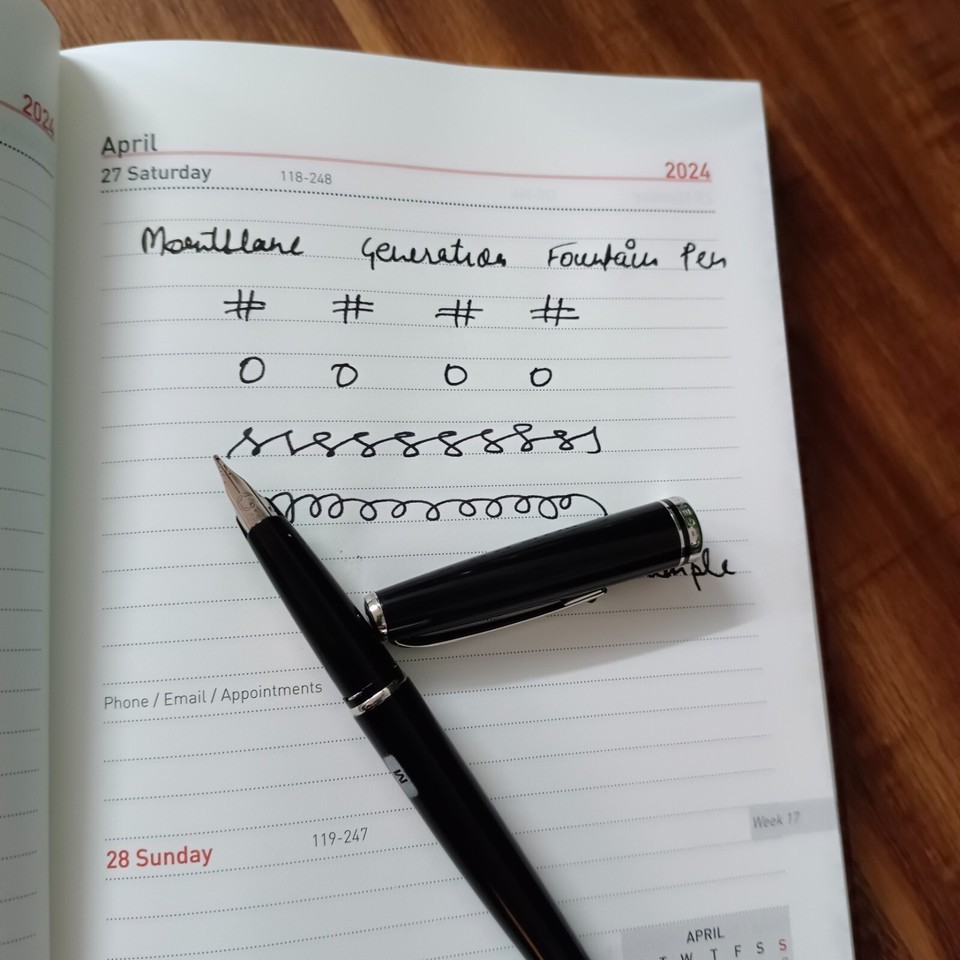 2024
April
27 Saturday 118-248 2024
Montblanc Generation Fountain Pen
# # # #
0 0 0 0
Phone / Email / Appointments
M
Week 17
28 Sunday 119-247
APRIL
T W T F S S